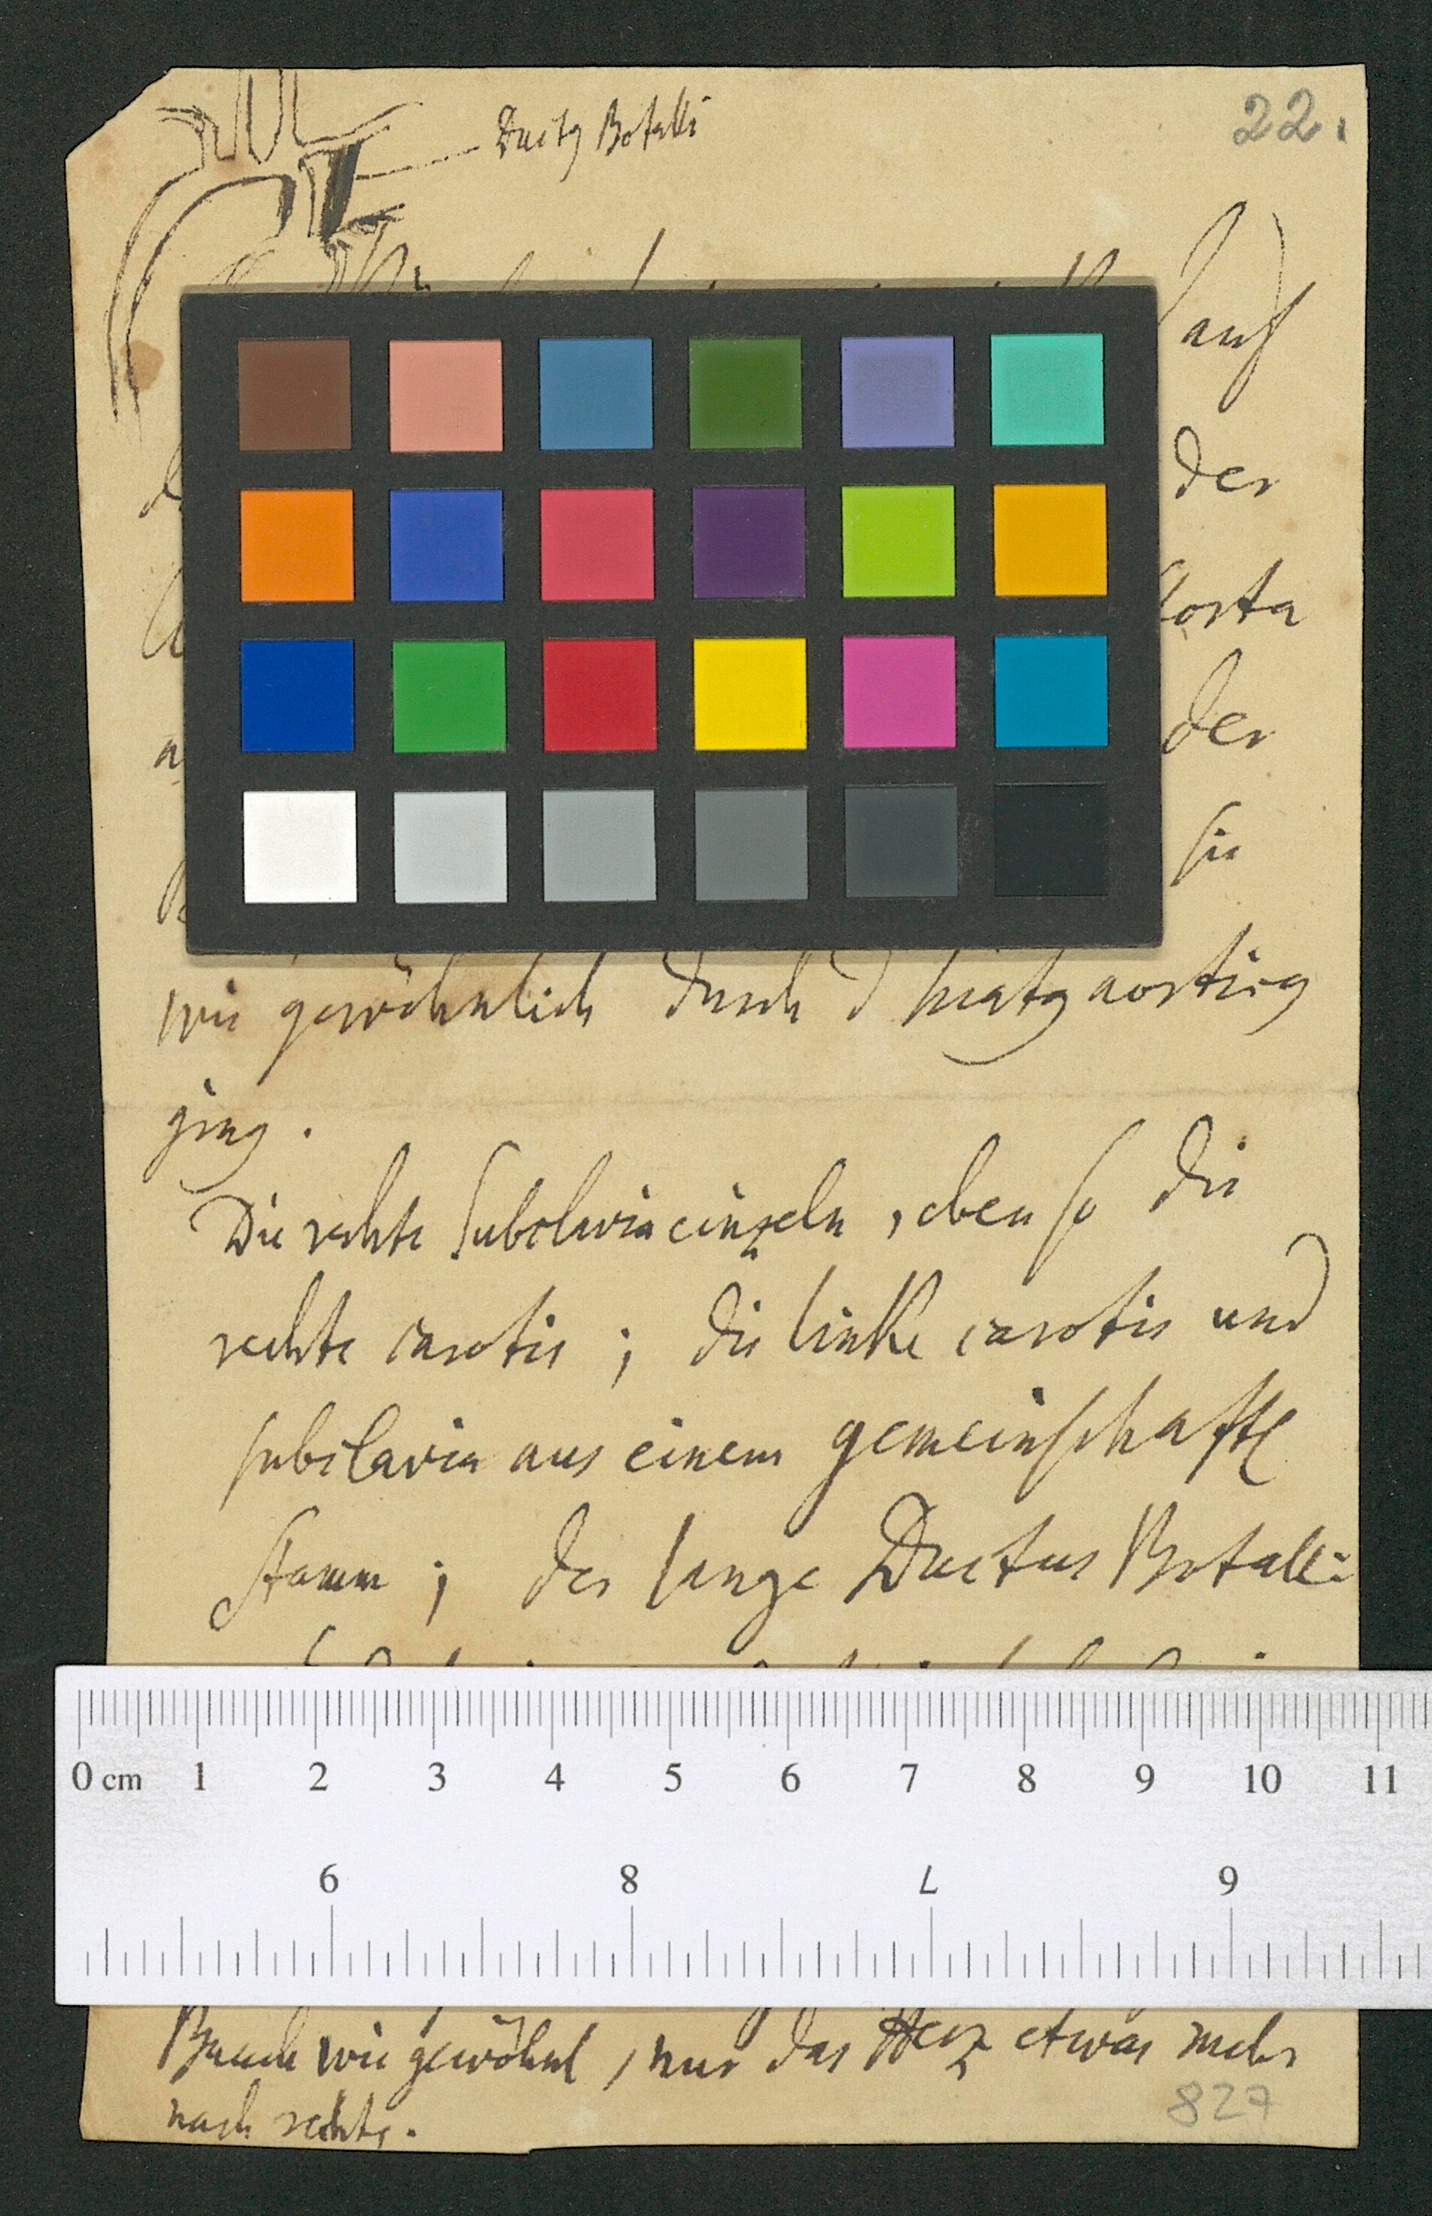 22.
Ductus Botalli
auf
der
Aorta
der
sie
wie gewöhnlich durch d hiatus aorticus
ging.
Die rechte Subclavia einzeln, eben so die
rechte carotis; die linke carotis und
subclavia aus einem gemeinschaftl
Stamm; der lange Ductus Botalli
0 cm 1 2 3 4 5 6 7 8 9 10 11
9 8 7 6
Bauch wie gewöhnl, nur das Herz etwas mehr
nach rechts.
827